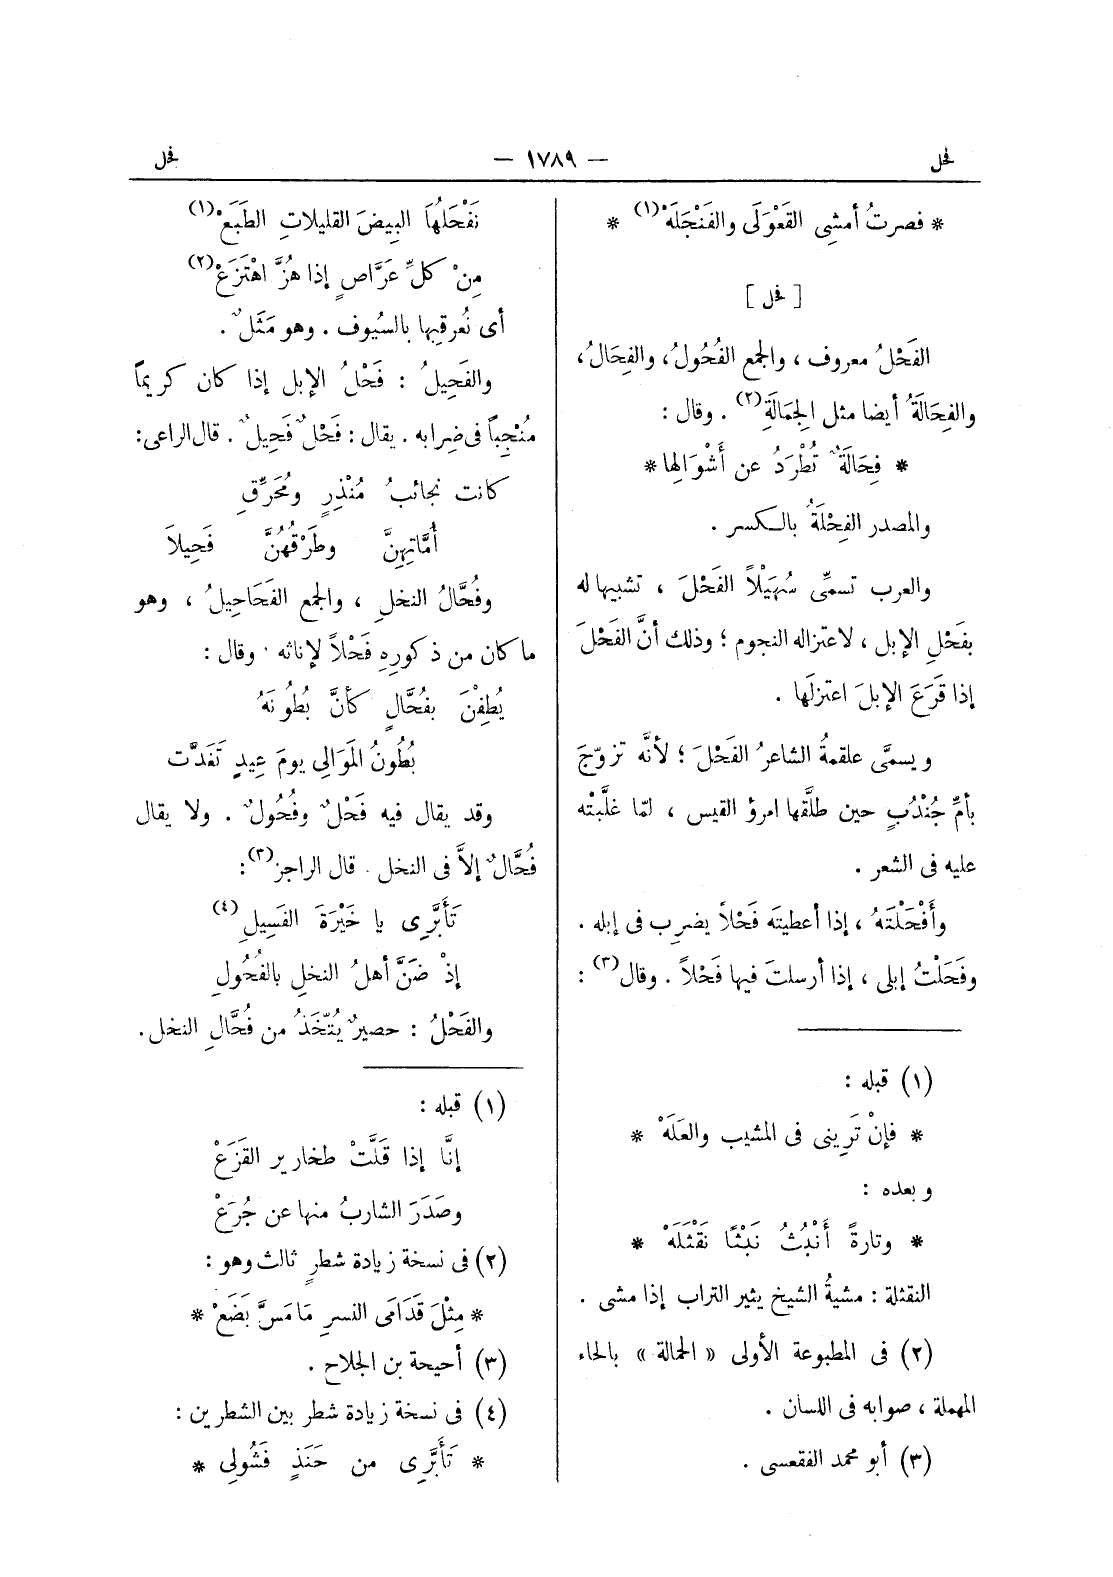 فحل
— ١٧٨٩ —
فحل
* فصرتُ أمشِى القَعْوَلَى والفَنْجَلَهْ(١) *
[ فحل ]
الفَحْلُ معروف ، والجمع الفُحُولُ، والفِحَالُ،
والفِحَالَةُ أيضا مثل الجِمَالَةِ(٢) . وقال :
* فِحَالَةٌ تُطْرَدُ عن أَشْوَالِها *
والمصدر الفِحْلَةُ بالكسر .
والعرب تسمِّى سُهَيْلاً الفَحْلَ ، تشبيها له
بفَحْلِ الإبل ، لاعتزاله النجوم ؛ وذلك أنَّ الفَحْلَ
إذا قَرَعَ الإبلَ اعتزلَها .
ويسمَّى علقمةُ الشاعرُ الفَحْلَ ؛ لأنَّه تزوّجَ
بأمِّ جُنْدُبٍ حين طلَّقها امرؤ القيس ، لمّا غلَّبَتْه
عليه فى الشعر .
وأَفْحَلْتَهُ ، إذا أعطيتَه فَحْلاً يضرِب فى إبله .
وفَحَلْتُ إبلى ، إذا أرسلتَ فيها فَحْلاً . وقال(٣) :
(١) قبله :
* فإنْ تَرِينى فى المشيب والعَلَهْ *
وبعده :
* وتارةً أَنْبُثُ نَبْثًا نَقْثَلَهْ *
النقثلة : مشيةُ الشيخ يثير التراب إذا مشى .
(٢) فى المطبوعة الأولى « الحمالة » بالحاء
المهملة ، صوابه فى اللسان .
(٣) أبو محمد الفقعسى .
نَفْحَلُهَا البِيضَ القليلاتِ الطَبَعْ(١)
مِنْ كلِّ عَرَّاصٍ إذا هُزَّ اهْتَزَعْ(٢)
أى نُعرقِبها بالسُيوف . وهو مَثَلٌ .
والفَحِيلُ : فَحْلُ الإبل إذا كان كريمًا
مُنْجِبًا فى ضِرابه . يقال : فَحْلٌ فَحِيلٌ . قال الراعى:
كانت نجائبُ مُنْذِرٍ ومُحَرِّقٍ
أُمَّاتِهِنَّ وطَرْقُهُنَّ فَحِيلاَ
وفُحَّالُ النخلِ ، والجمع الفَحَاحِيلُ ، وهو
ما كان من ذكورِهِ فَحْلاً لإناثه . وقال :
يُطِفْنَ بفُحَّالٍ كأنَّ بُطُونَهُ
بُطُونُ المَوَالِى يومَ عِيدٍ تَغَدَّت
وقد يقال فيه فَحْلٌ وفُحُولٌ . ولا يقال
فُحَّالٌ إلاَّ فى النخل . قال الراجز(٣):
تَأَبَّرِى يا خَيْرَةَ الفَسِيلِ(٤)
إذْ ضَنَّ أهلُ النخلِ بالفُحُولِ
والفَحْلُ : حصيرٌ يُتَّخَذُ من فُحَّالِ النخل .
(١) قبله :
إنَّا إذا قَلَّتْ طخارير القَزَعْ
وصَدَرَ الشاربُ منها عن جُرَعْ
(٢) فى نسخة زيادة شطرٍ ثالث وهو :
* مِثْلَ قَدَامَى النسرِ مَا مَسَّ بَضَعْ *
(٣) أحيحة بن الجلاح .
(٤) فى نسخة زيادة شطر بين الشطرين :
* تَأَبَّرِى من حَنَذٍ فَشُولِى *